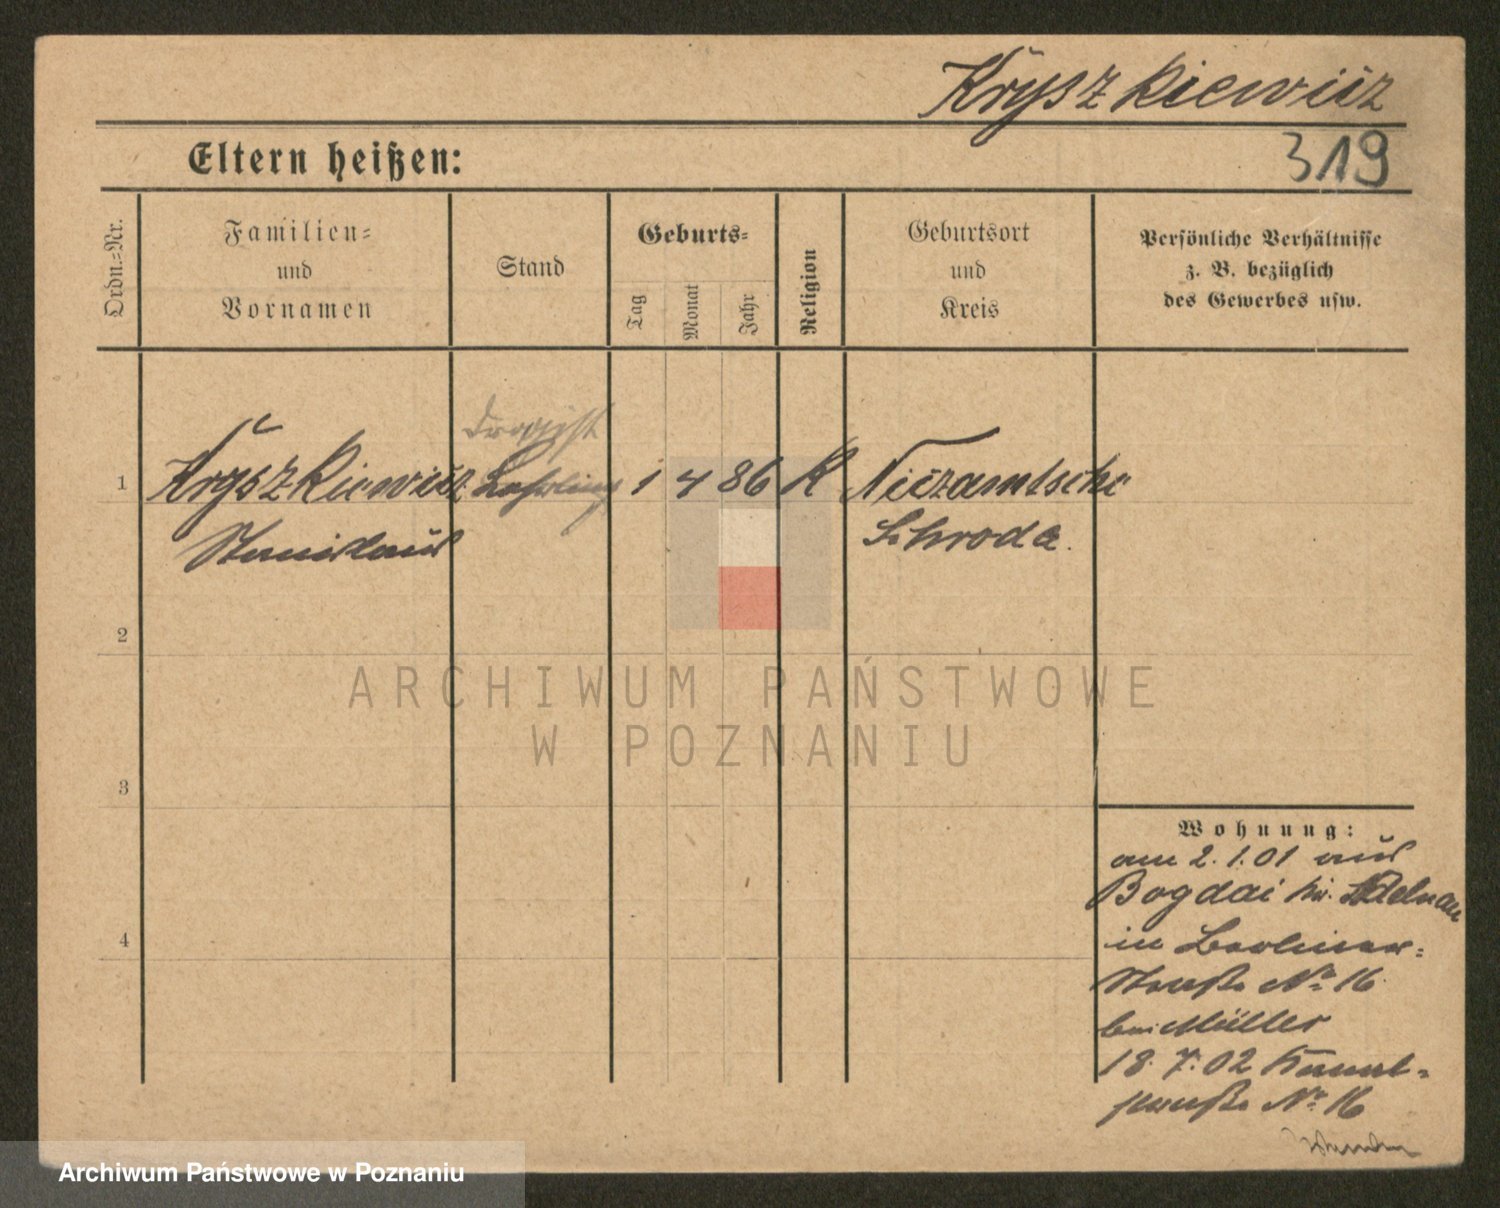 Kryszkiewicz
319
Eltern heißen:
Ordn.-Nr.
Familien-
und
Vornamen
Stand
Geburts-
Tag
Monat
Jahr
Religion
Geburtsort
und
Kreis
Persönliche Verhältnisse
z. B. bezüglich
des Gewerbes usw.
Drogist
1 Kryszkiewicz Lehrling 1 4 86 K
Stanislaus Schroda.
2
3
4
ARCHIWUM PAŃSTWOWE
W POZNANIU
Wohnung:
am 2.1.01 aus
Bogdaj Kr. Adelnau
in Berliner-
Straße No 16
bei Müller
18.7.02
straße No 16
Archiwum Państwowe w Poznaniu